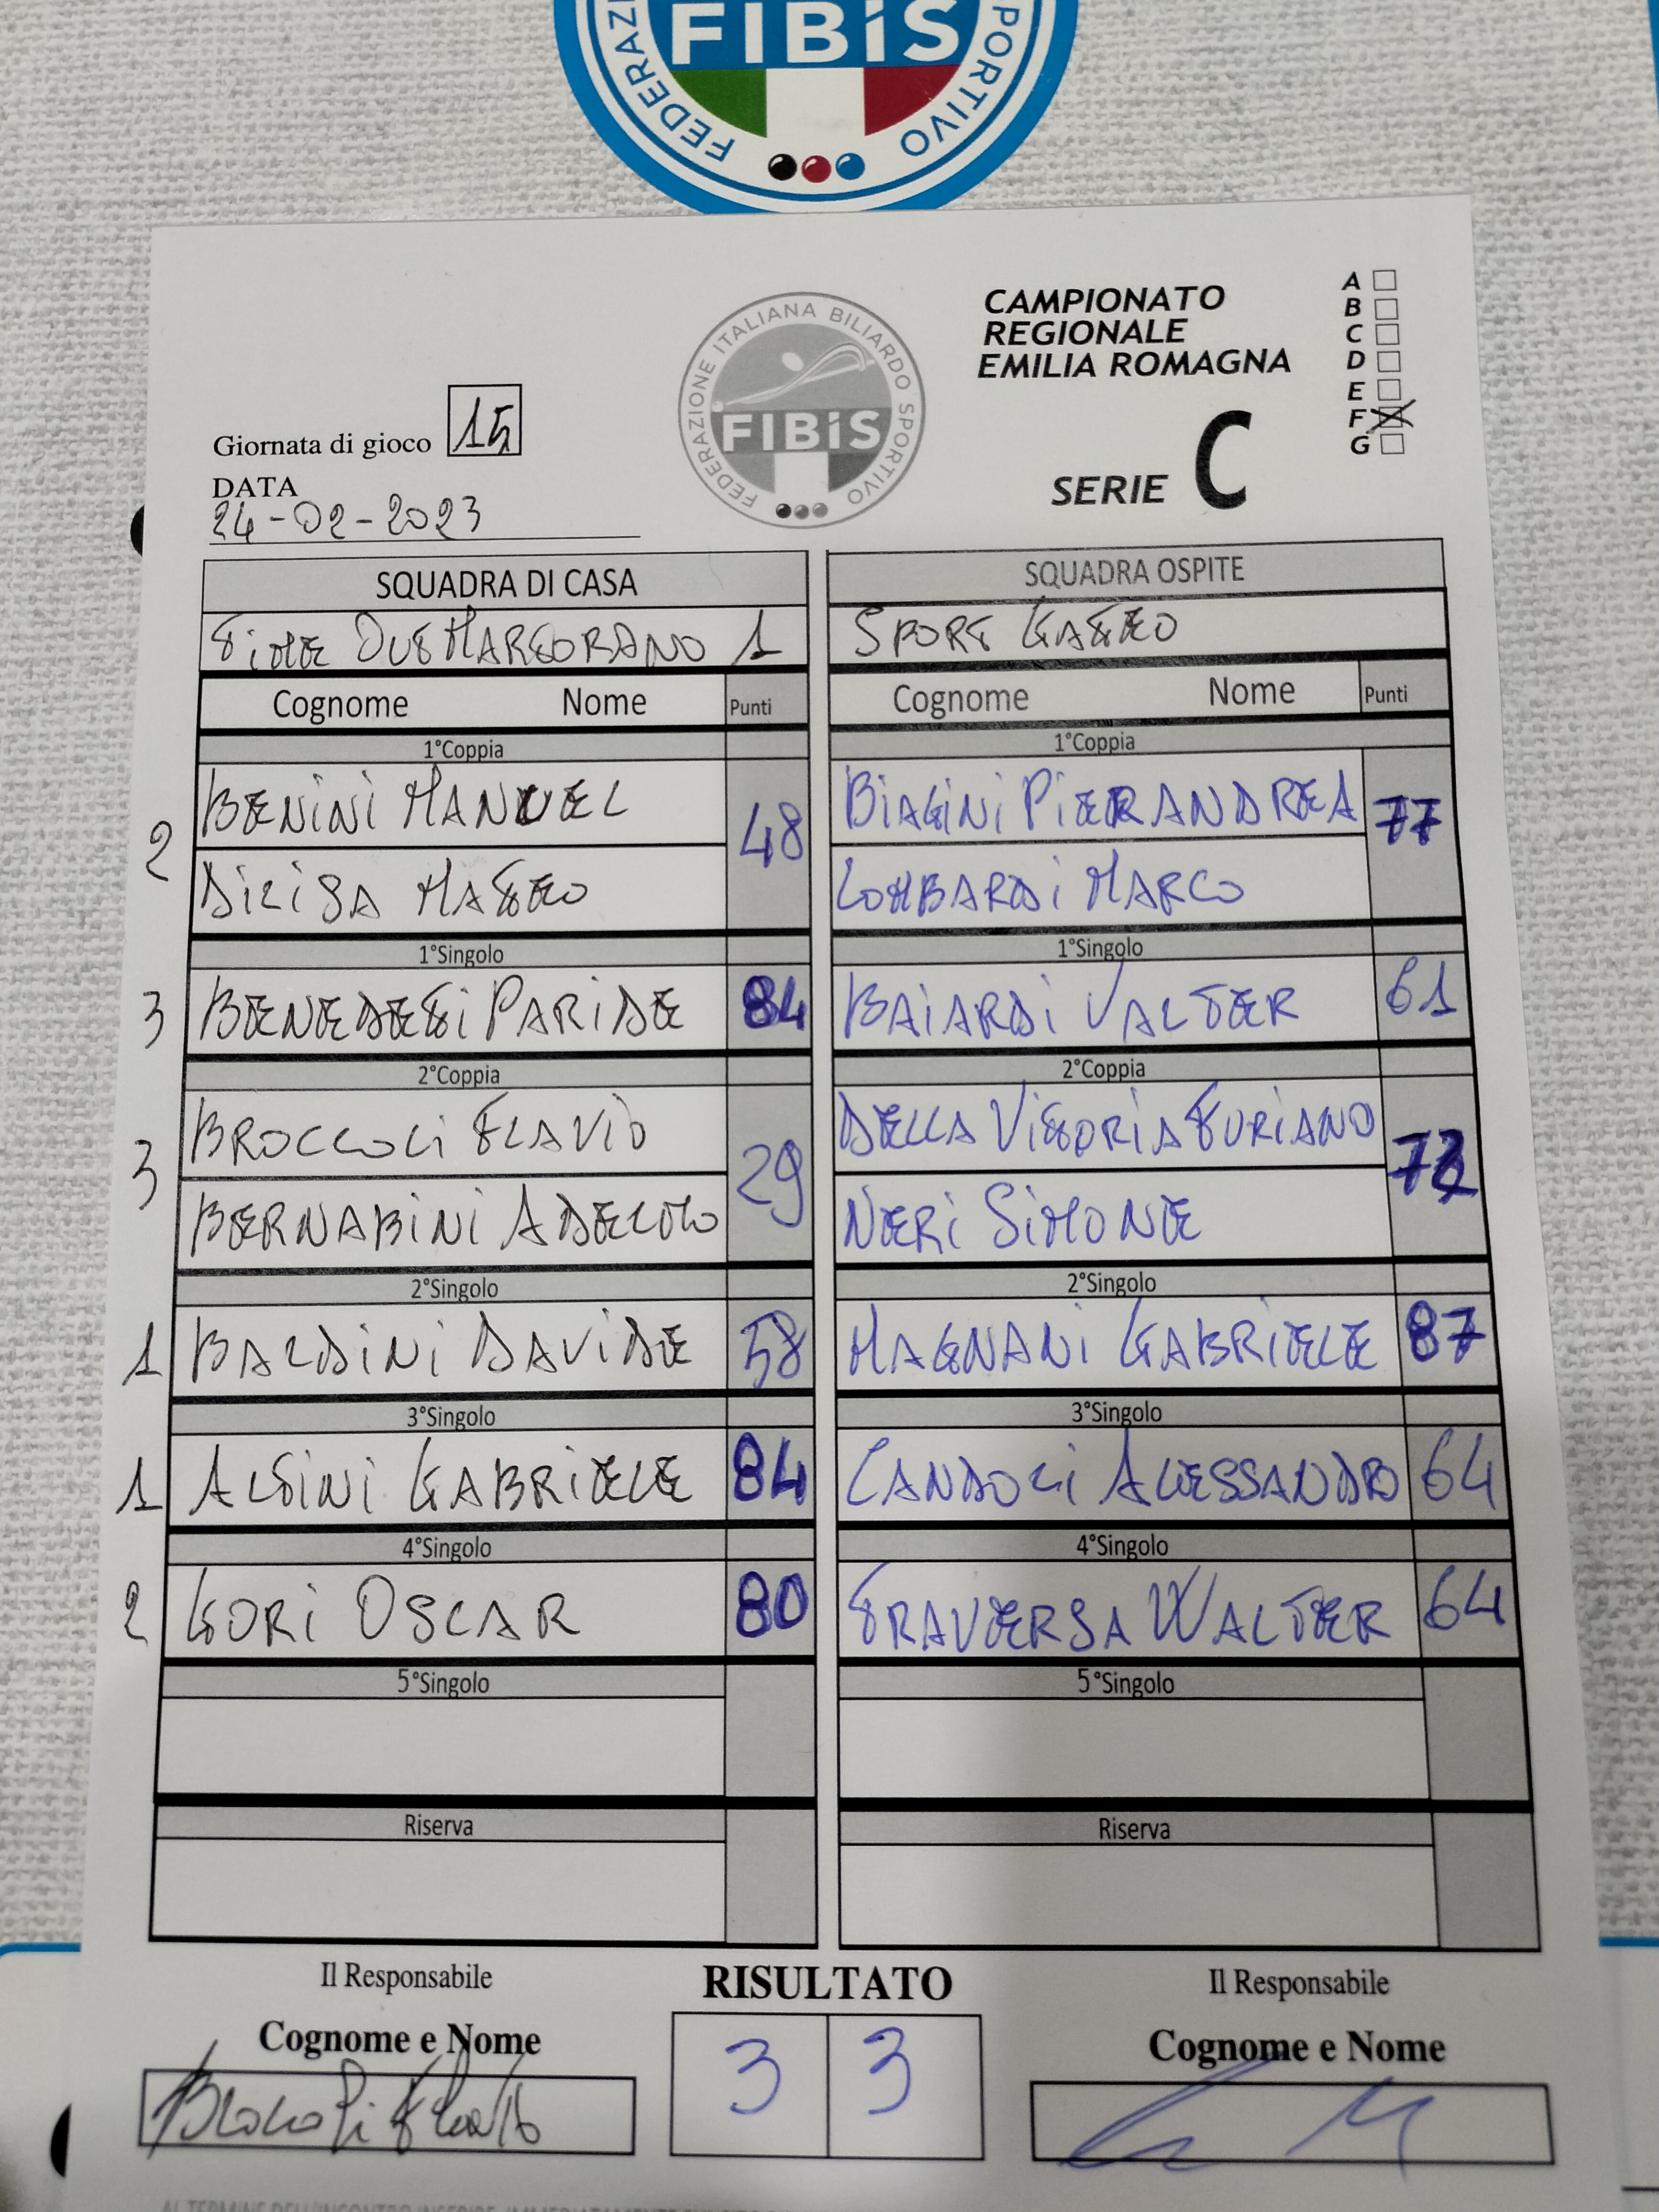 FIBiS
FEDERAZI
SPORTIVO
FEDERAZIONE ITALIANA BILIARDO SPORTIVO
FIBiS
CAMPIONATO
REGIONALE
EMILIA ROMAGNA
A
B
C
D
E
F X
G
SERIE C
Giornata di gioco 15
DATA
24-02-2023
SQUADRA DI CASA SQUADRA OSPITE
TIME OUT MARTORANO 1 SPORT GATTEO
Cognome Nome Punti Cognome Nome Punti
1°Coppia 1°Coppia
2 BENINI MANUEL 48 BIAGINI PIERANDREA 77
MATTEO LOMBARDI MARCO
1°Singolo 1°Singolo
3 BENEDETTI PARIDE 84 BAIARDI VALTER 61
2°Coppia 2°Coppia
3 BROCCOLI FLAVIO 29 DELLA VITTORIA TURIANO 72
BERNABINI ADELMO NERI SIMONE
2°Singolo 2°Singolo
1 BALDINI DAVIDE 58 MAGNANI GABRIELE 87
3°Singolo 3°Singolo
1 ALTINI GABRIELE 84 CANDOLI ALESSANDRO 64
4°Singolo 4°Singolo
2 GORI OSCAR 80 TRAVERSA WALTER 64
5°Singolo 5°Singolo
Riserva Riserva
Il Responsabile RISULTATO Il Responsabile
Cognome e Nome 3 3 Cognome e Nome